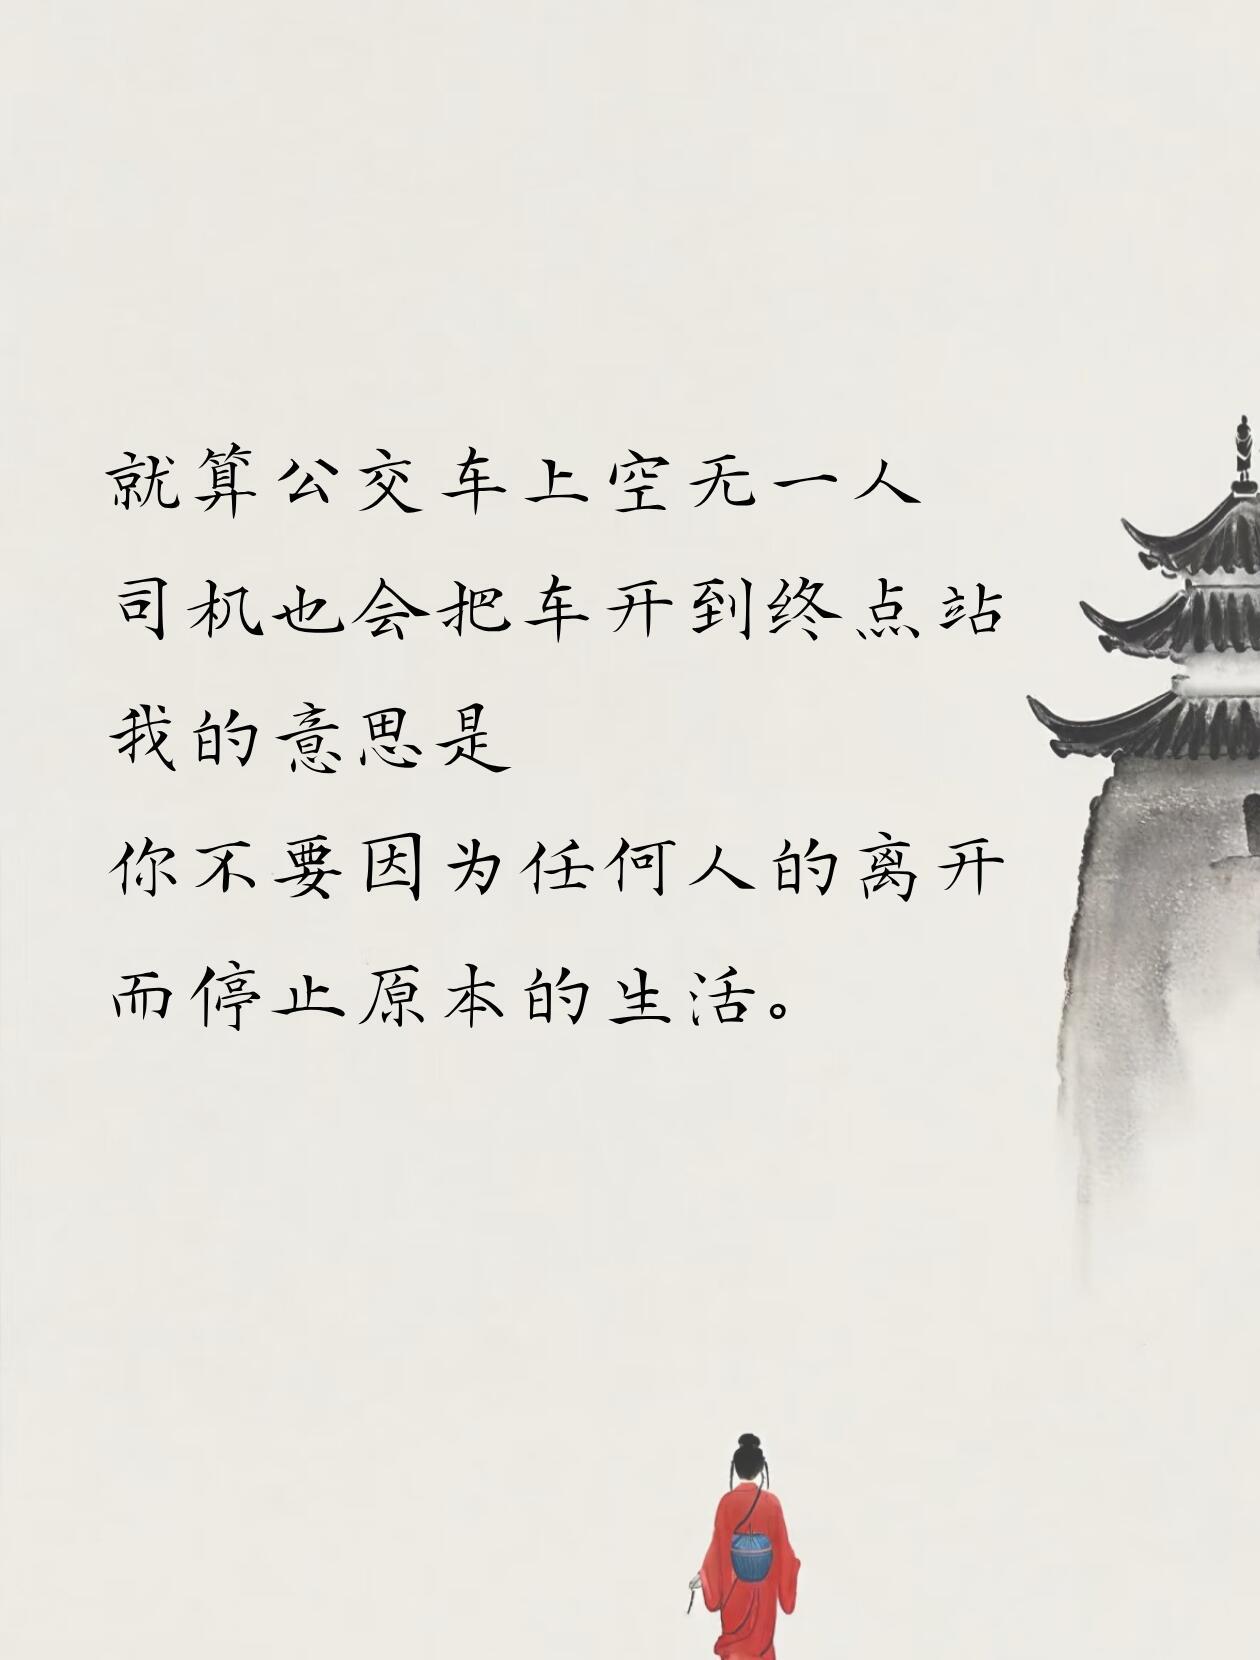 就算公交车上空无一人
司机也会把车开到终点站
我的意思是
你不要因为任何人的离开
而停止原本的生活。